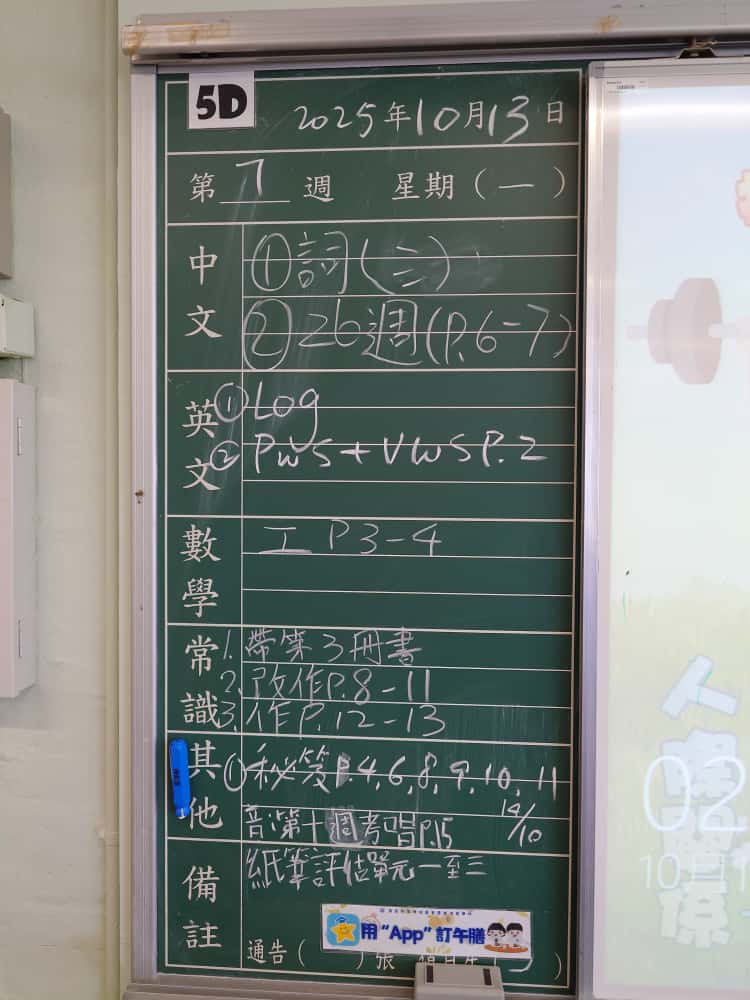 5D
2025年10月13日
第 7 週 星期（一）
中文
①詞(三)
②26週(P.6-7)
英文
①Log
②PWS + VWS P.2
數學
工 P3-4
常識
1. 帶第3冊書
2. 改作P.8-11
3. 作P.12-13
其他
① P.4, 6, 8, 9, 10, 11
音:第十週考 P.15 14/10
備註
紙筆評估單元一至三
用"App"訂午膳
通告（ ）張
人際關係
02
10月1